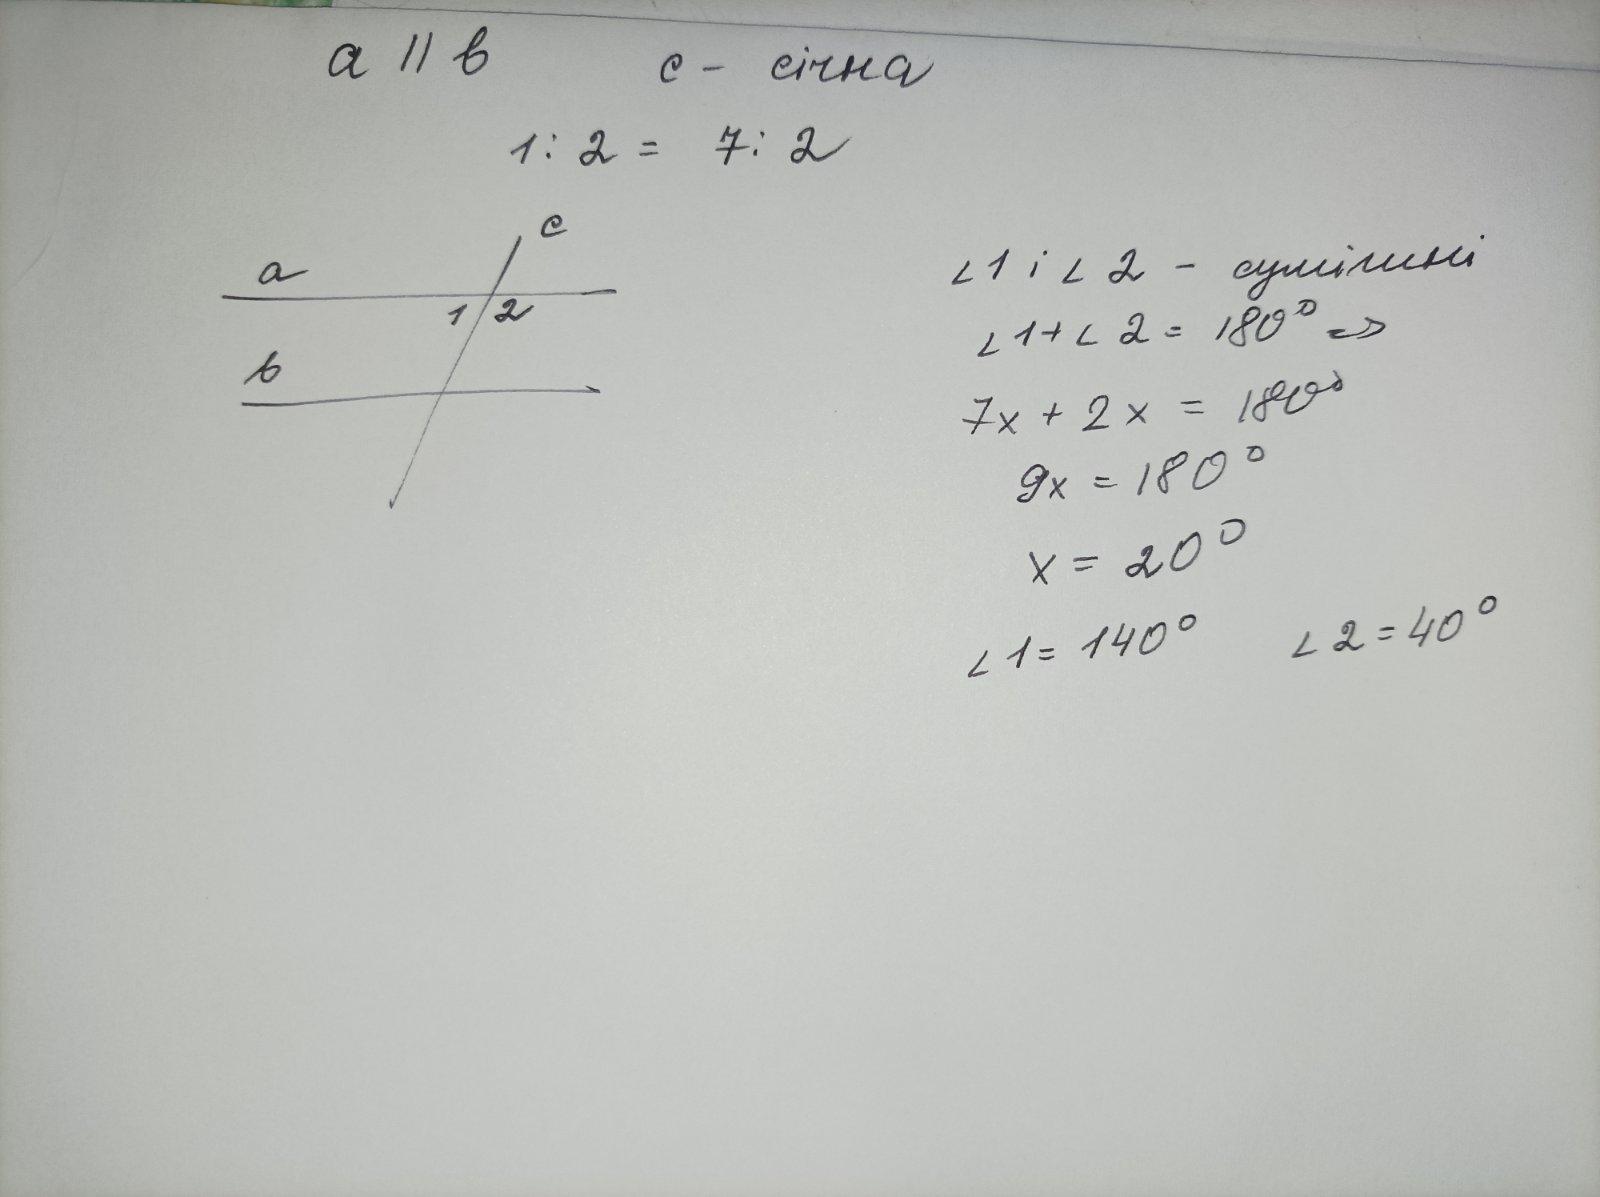 a || b c - січна
1 : 2 = 7 : 2
c
a
1 2
b
∠1 і ∠2 - суміжні
∠1 + ∠2 = 180° =>
7x + 2x = 180°
9x = 180°
x = 20°
∠1 = 140° ∠2 = 40°